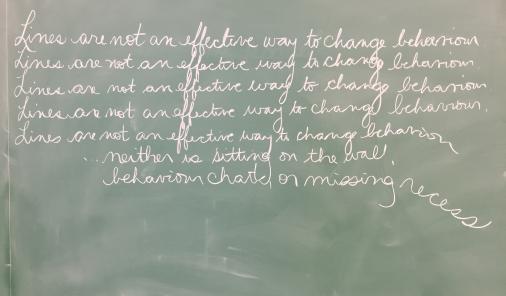 Lines are not an effective way to change behaviour
Lines are not an effective way to change behaviour.
Lines are not an effective way to change behaviour
Lines are not an effective way to change behaviour.
Lines are not an effective way to change behaviour
...neither is sitting on the wall,
behaviour charts, or missing recess